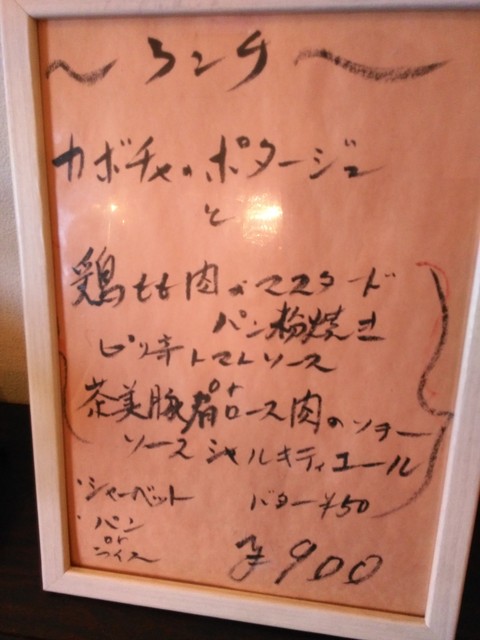 ～ランチ～
カボチャのポタージュ
と
鶏もも肉のマスタード
パン粉焼き
ピリ辛トマトソース
or
茶美豚肩ロース肉のソテー
ソースシャルキティエール
・シャーベット
バター¥50
・パン
or
ライス
¥900